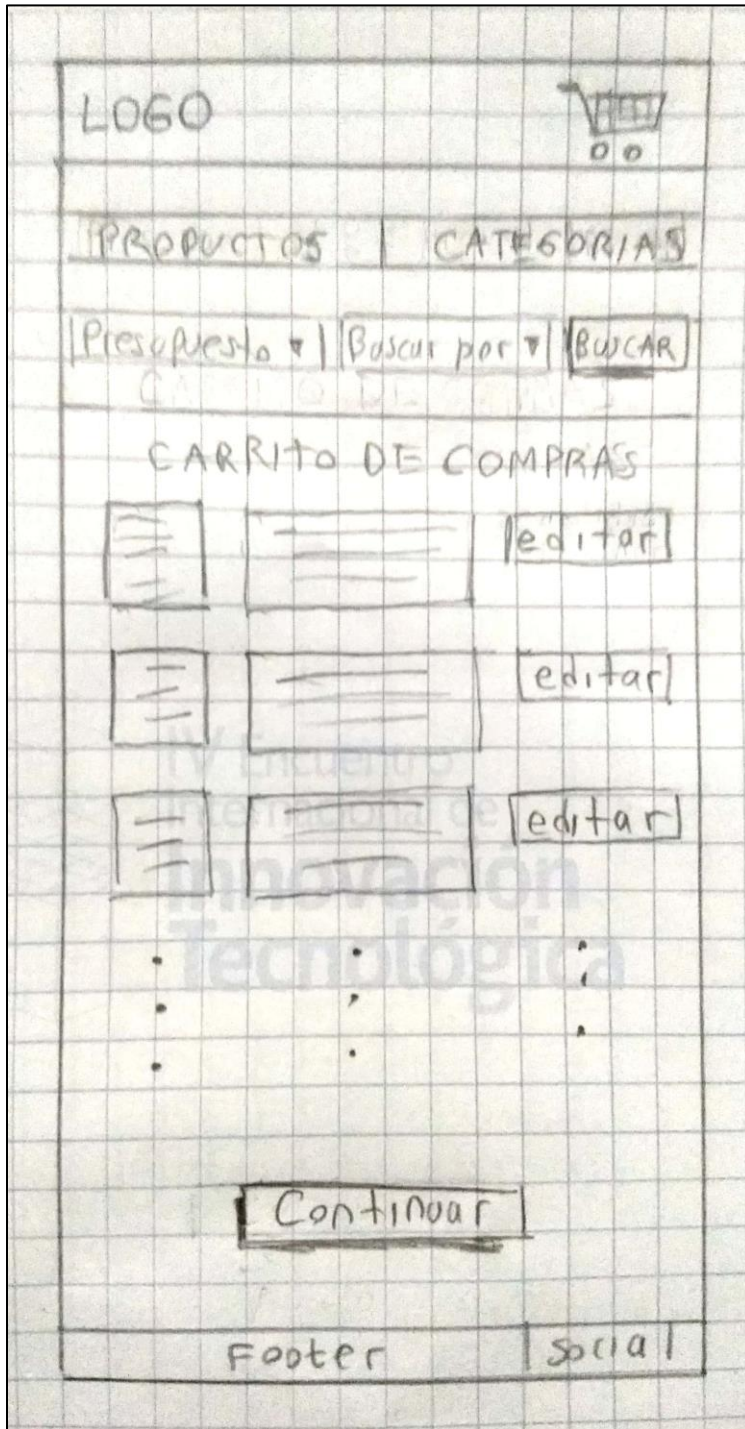 LOGO
PRODUCTOS | CATEGORIAS
Presupuesto ▾ Buscar por ▾ BUSCAR
CARRITO DE COMPRAS
CARRITO DE COMPRAS
editar
editar
IV Encuentro
Internacional de
editar
Innovación
Tecnológica
Continuar
Footer social